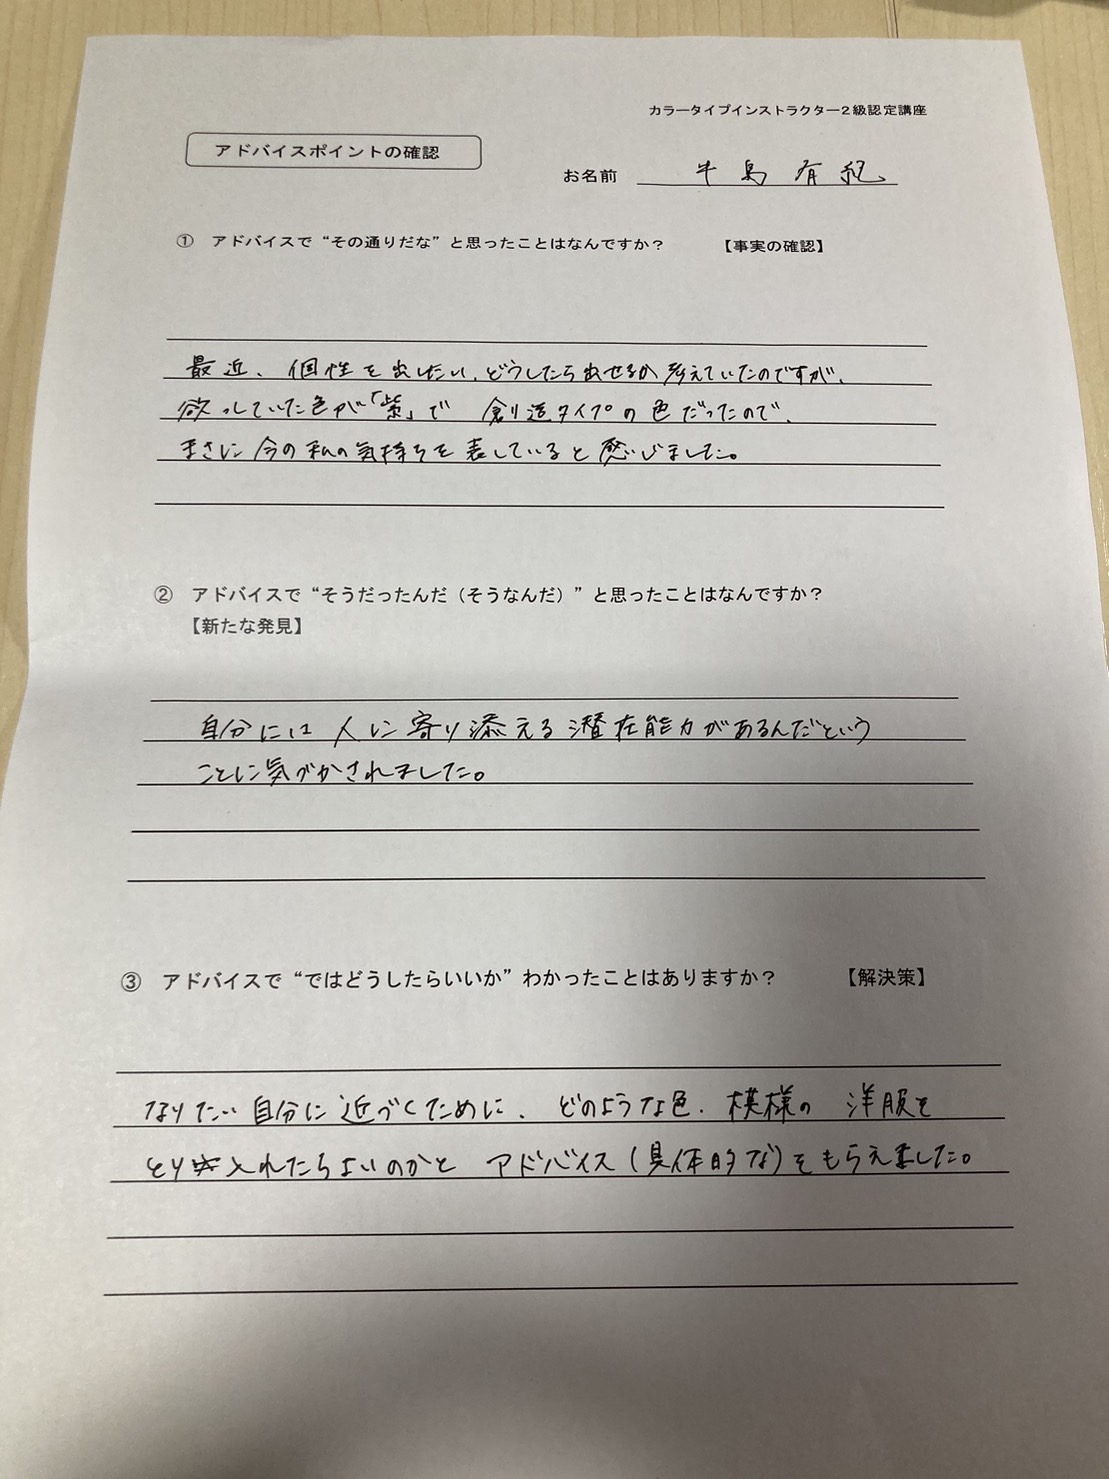 カラータイプインストラクター2級認定講座
アドバイスポイントの確認
お名前 牛島 有紀
① アドバイスで“その通りだな”と思ったことはなんですか? 【事実の確認】
最近、個性を出したい、どうしたら出せるか考えていたのですが、
欲っしていた色が「紫」で 創造タイプの色だったので、
まさに今の私の気持ちを表していると感じました。
② アドバイスで“そうだったんだ(そうなんだ)”と思ったことはなんですか?
【新たな発見】
自分には人に寄り添える潜在能力があるんだという
ことに気づかされました。
③ アドバイスで“ではどうしたらいいか”わかったことはありますか? 【解決策】
なりたい自分に近づくために、どのような色、模様の洋服を
とり入れたらよいのかと アドバイス(具体的な)をもらえました。